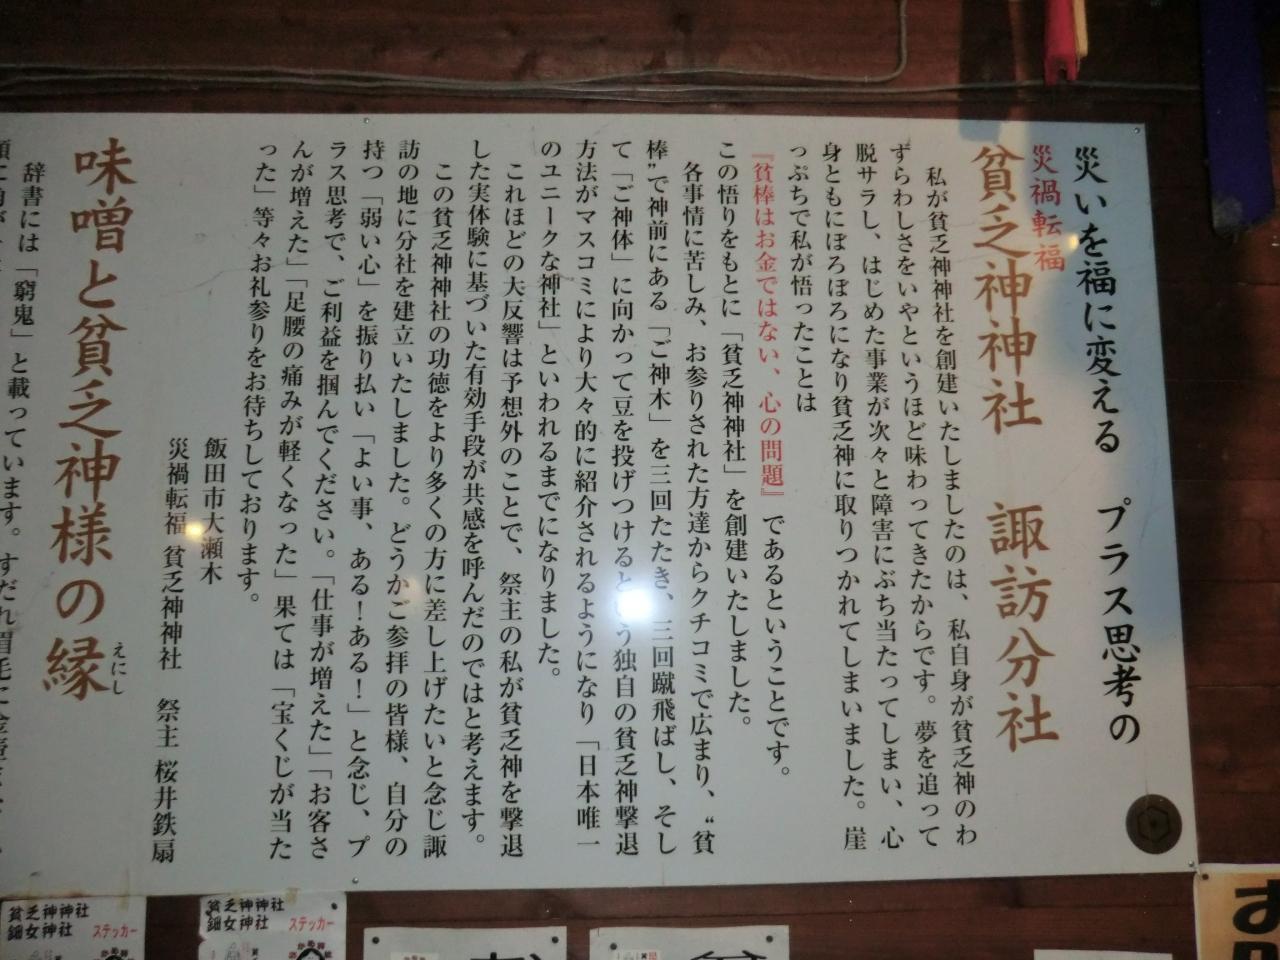 災いを福に変える プラス思考の
災禍転福
貧乏神神社 諏訪分社
私が貧乏神神社を創建いたしましたのは、私自身が貧乏神のわ
ずらわしさをいやというほど味わってきたからです。夢を追って
脱サラし、はじめた事業が次々と障害にぶち当たってしまい、心
身ともにぼろぼろになり貧乏神に取りつかれてしまいました。崖
っぷちで私が悟ったことは
『貧棒はお金ではない、心の問題』であるということです。
この悟りをもとに「貧乏神神社」を創建いたしました。
各事情に苦しみ、お参りされた方達からクチコミで広まり、“貧
棒”で神前にある「ご神木」を三回たたき、三回蹴飛ばし、そし
て「ご神体」に向かって豆を投げつけるという独自の貧乏神撃退
方法がマスコミにより大々的に紹介されるようになり「日本唯一
のユニークな神社」といわれるまでになりました。
これほどの大反響は予想外のことで、祭主の私が貧乏神を撃退
した実体験に基づいた有効手段が共感を呼んだのではと考えます。
この貧乏神神社の功徳をより多くの方に差し上げたいと念じ諏
訪の地に分社を建立いたしました。どうかご参拝の皆様、自分の
持つ「弱い心」を振り払い「よい事、ある！ある！」と念じ、プ
ラス思考で、ご利益を掴んでください。「仕事が増えた」「お客さ
んが増えた」「足腰の痛みが軽くなった」果ては「宝くじが当た
った」等々お礼参りをお待ちしております。
飯田市大瀬木
災禍転福 貧乏神神社 祭主 桜井鉄扇
味噌と貧乏神様の縁
えにし
辞書には「窮鬼」と載っています。すだれ眉毛に
貧乏神神社
鈿女神社
ステッカー
貧乏神神社
鈿女神社
ステッカー